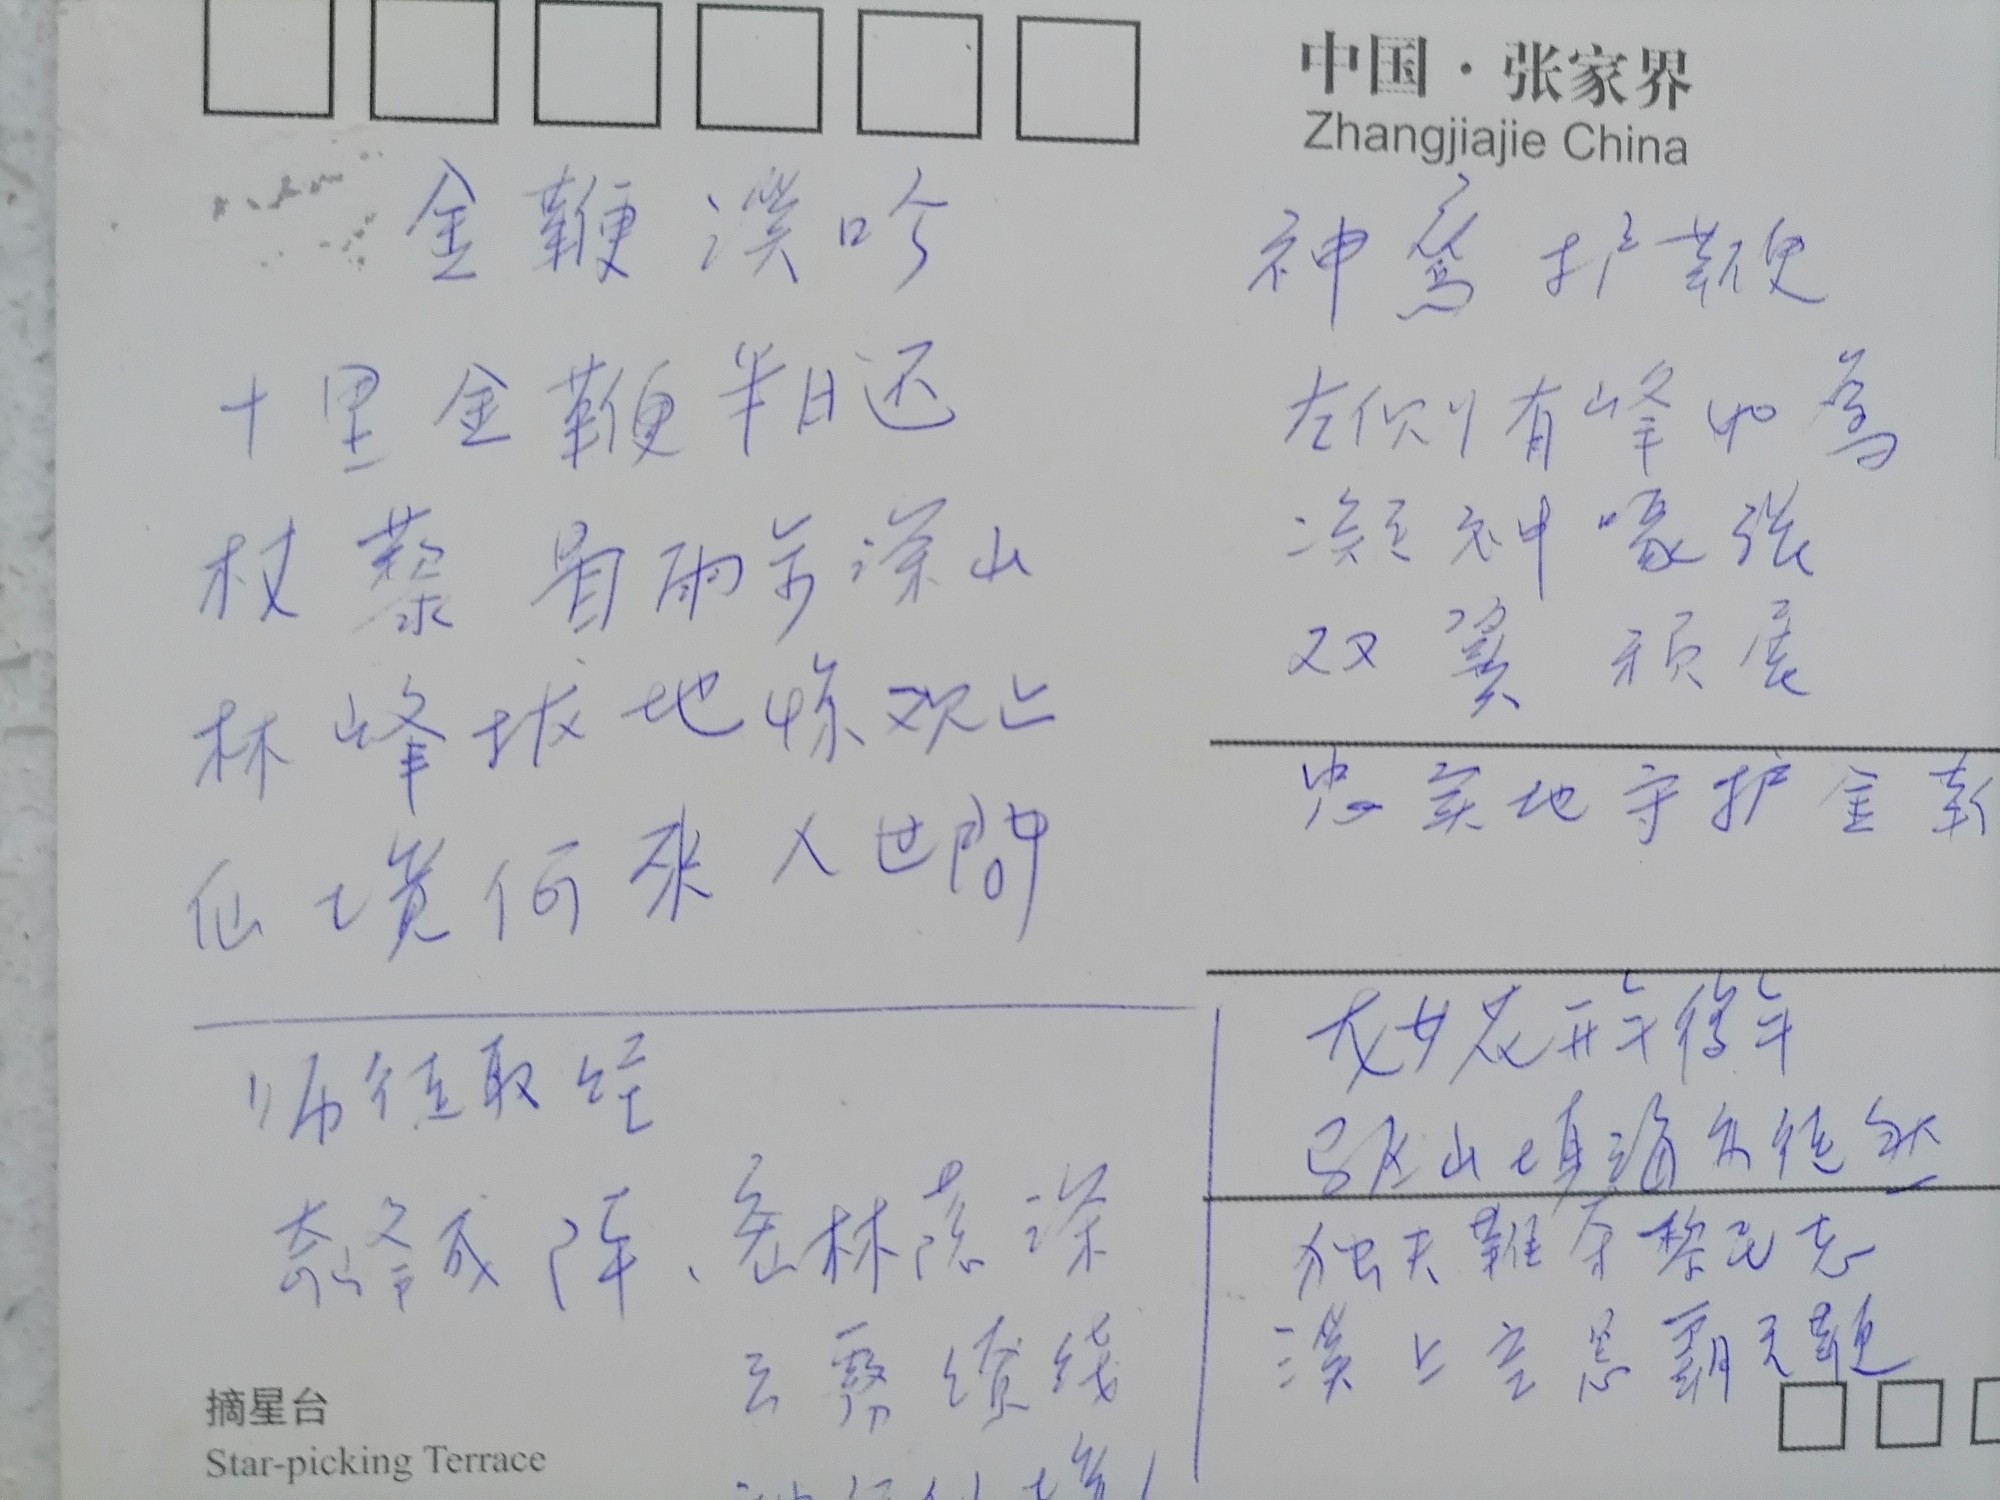 中国·张家界
Zhangjiajie China
金鞭溪吟
十里金鞭半日还
杖藜冒雨步深山
林峰拔地惊观止
仙境何来人世间
师徒取经
奇峰成阵、密林荫深
云雾缭绕
神鹰护鞭
左侧有峰如鹰
凝神嚎张
双翼
展
忠实地守护金鞭
龙女
驱山填海亦徒然
独夫难奈黎民志
溪上空息霸王鞭
摘星台
Star-picking Terrace